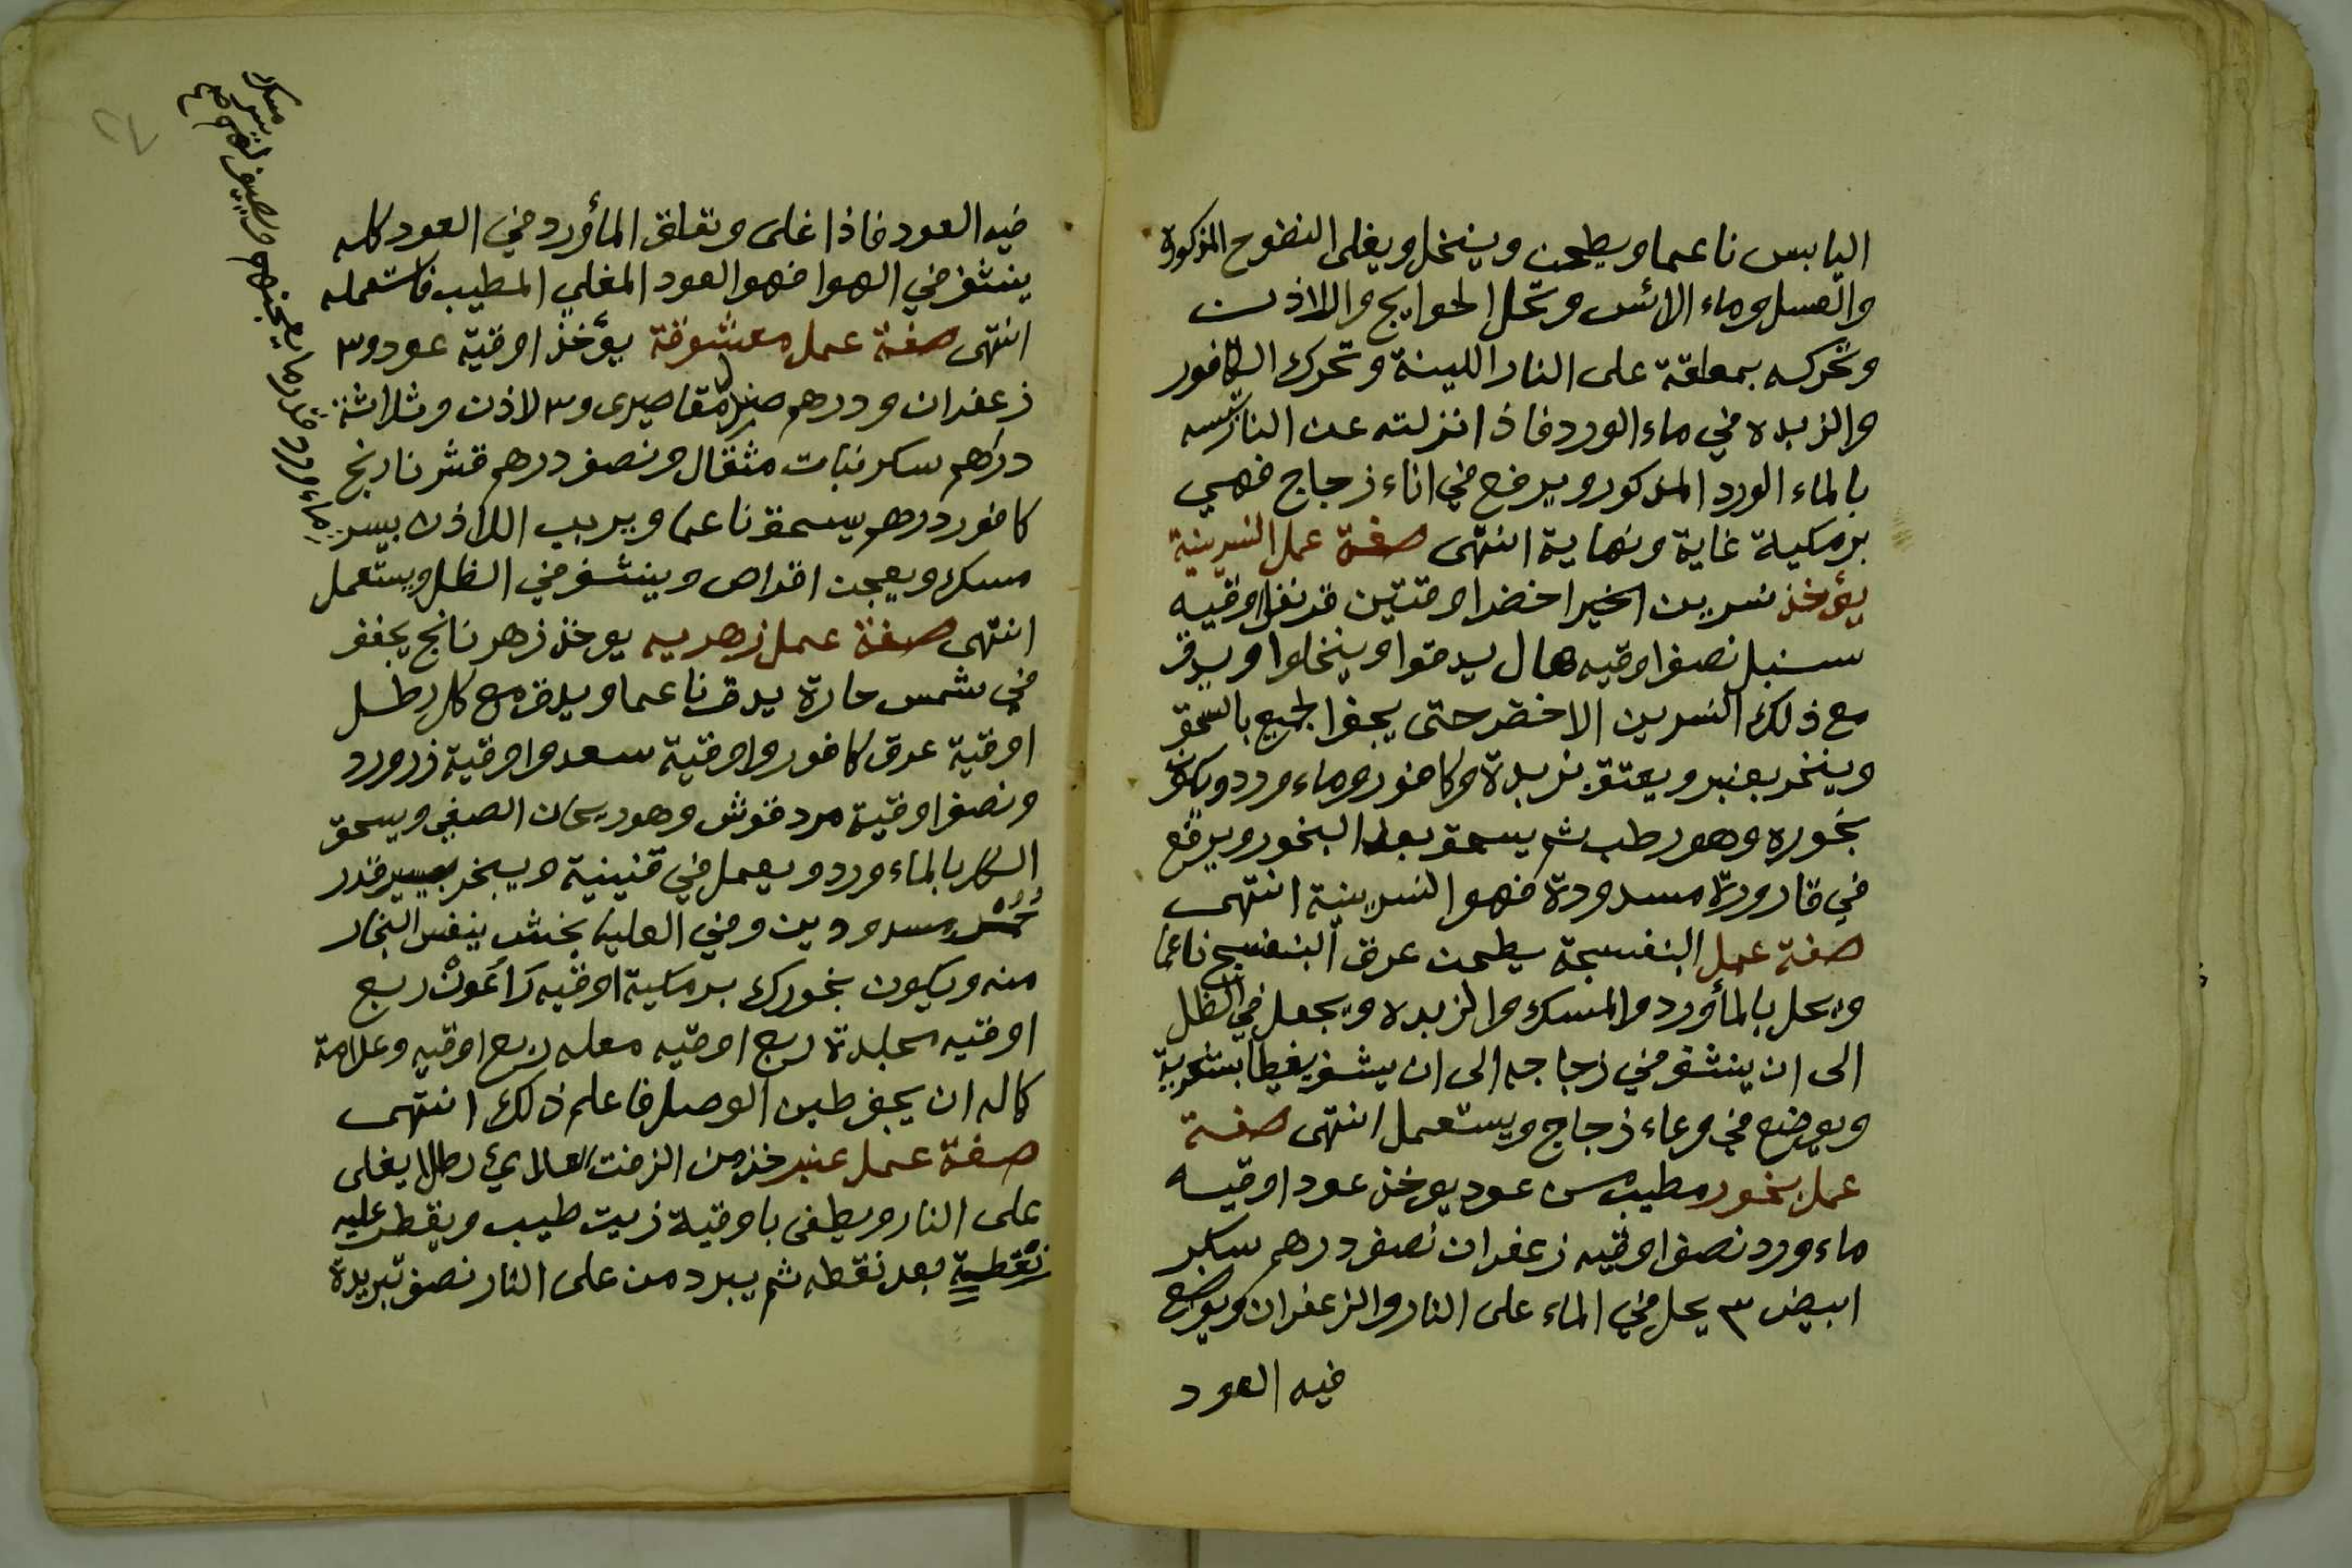 اليابس ناعما ويطحن وينخل ويغلى النضوح المذكورة
والعسل وماء الائس وتحل الحوايج واللاذن
وتحركه بمعلقة على النار اللينة وتحرك الكافور
والزبده في ماء الورد فاذا انزلته عن النار تسسه
بالماء الورد المذكور ويرفع في اناء زجاج فهي
برمكية غاية ونهاية انتهى صفة عمل النسرينية
يؤخذ نسرين اخير اخضر اوقتين قرنفل اوقيه
سنبل نصف اوقيه هال يدقوا وينخلوا ويدق
مع ذلك النسرين الاخضر حتى يجف الجميع بالسحق
ويبخر بعنبر ويعتق بزبدة وكافور وماء ورد ويكون
بخوره وهو رطب ثم يسحق بعد البخور ويرفع
في قارورة مسدودة فهو النسرينية انتهى
صفة عمل البنفسجة يطحن عرق البنفسج ناعما
ويحل بالمأورد والمسك والزبده ويجعل في الظل
الى ان ينشف في زجاجه الى ان ينشف يغطا بشعرية
ويوضع في وعاء زجاج ويستعمل انتهى صفة
عمل بخور مطيب من عود يوخذ عود اوقيه
ماء ورد نصف اوقيه زعفران نصف درهم سكر
ابيض ٣ يحل في الماء على النار والزعفران ويوضع
فيه العود
فيه العود فاذا غلى وتعلق المأورد في العود كله
ينشف في الهوا فهو العود المغلي المطيب فاستعمله
انتهى صفة عمل معشوقة يؤخذ اوقية عود و٣
زعفران ودرهم صندل مقاصيرى و٣ لاذن وثلاثة
دراهم سكر نبات مثقال ونصف درهم قشر نارنج
كافور درهم يسحق ناعما ويربب اللاذن بيسر
مسك ويعجن اقراص وينشف في الظل ويستعمل
انتهى صفة عمل زهريه يوخذ زهر نانج يجفف
في شمس حارة يدق ناعما ويدق مع كل رطل
اوقية عرق كافور واوقية سعد واوقية زرورد
ونصف اوقية مردقوش وهو ريحان الصفي ويسحق
الكل بالماء ورد ويعمل في قنينية ويبخر قدر
مسدودين وفي العليا بخش ينفس البخار
منه ويكون بخورك برمكية اوقيه راعون ربع
اوقيه محلبة ربع اوقيه معله ربع اوقيه وعلامة
كماله ان يجف طين الوصل فاعلم ذلك انتهى
صفة عمل عنبر خذ من الزفت رطلا يغلى
على النار ويطفى باوقية زيت طيب ويقطر عليه
نقطة بعد نقطه ثم يبرد من على النار نصف تبريدة